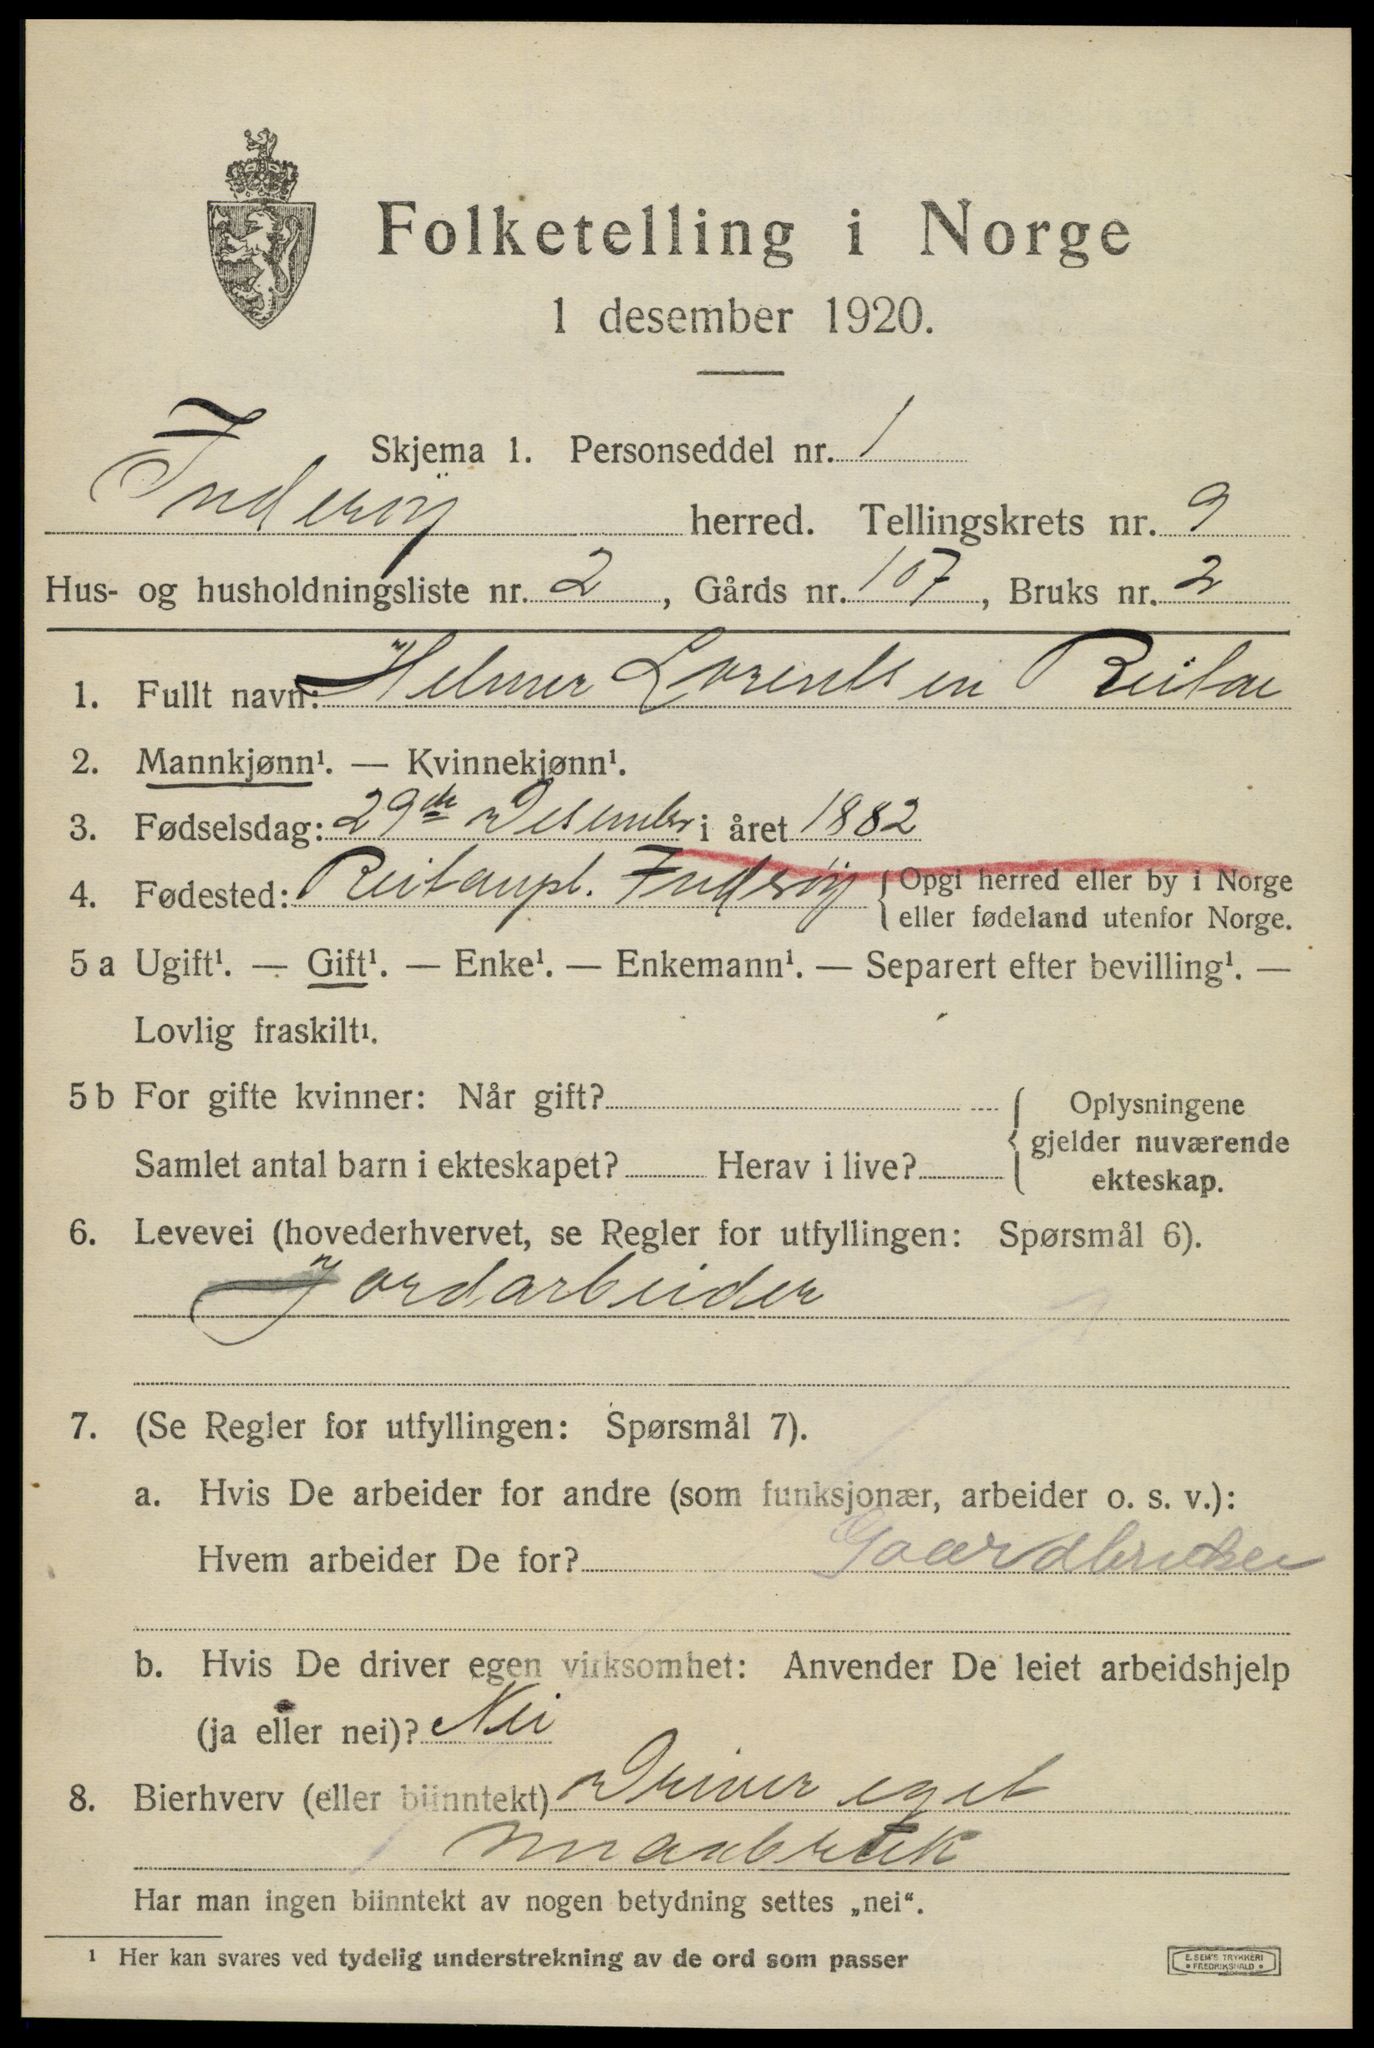 Folketelling i Norge
1 desember 1920.
Skjema 1. Personseddel nr. 1
Inderöy herred. Tellingskrets nr. 9
Hus- og husholdningsliste nr. 2, Gårds nr. 107, Bruks nr. 2
1. Fullt navn: Helmer Lorentsen Reitan
2. Mannkjønn¹. — Kvinnekjønn¹.
3. Fødselsdag: 29de Desember i året 1882
4. Fødested: Reitanpl. Inderöy { Opgi herred eller by i Norge
eller fødeland utenfor Norge.
5 a Ugift¹. — Gift¹. — Enke¹. — Enkemann¹. — Separert efter bevilling¹. —
Lovlig fraskilt¹.
5 b For gifte kvinner: Når gift?
Samlet antal barn i ekteskapet? Herav i live?
{ Oplysningene
gjelder nuværende
ekteskap.
6. Levevei (hovederhvervet, se Regler for utfyllingen: Spørsmål 6).
Jordarbeider
7. (Se Regler for utfyllingen: Spørsmål 7).
a. Hvis De arbeider for andre (som funksjonær, arbeider o. s. v.):
Hvem arbeider De for? Gaardbruker
b. Hvis De driver egen virksomhet: Anvender De leiet arbeidshjelp
(ja eller nei)? Nei
8. Bierhverv (eller biinntekt) Driver eget
smaabruk
Har man ingen biinntekt av nogen betydning settes „nei“.
¹ Her kan svares ved tydelig understrekning av de ord som passer
E. SEM'S TRYKKERI
• FREDRIKSHALD •